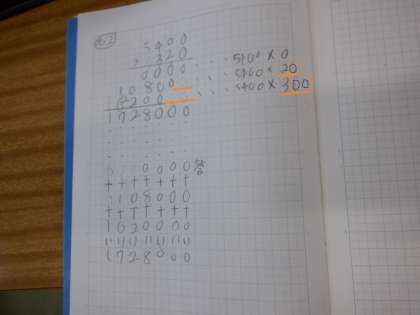 5400
× 320
0000 ... 5400 × 0
10800 ... 5400 × 20
16200 ... 5400 × 300
1728000
0000
+ + + + + + +
108000
+ + + + + + +
1620000
11 11 11 11 11 11 11
1728000